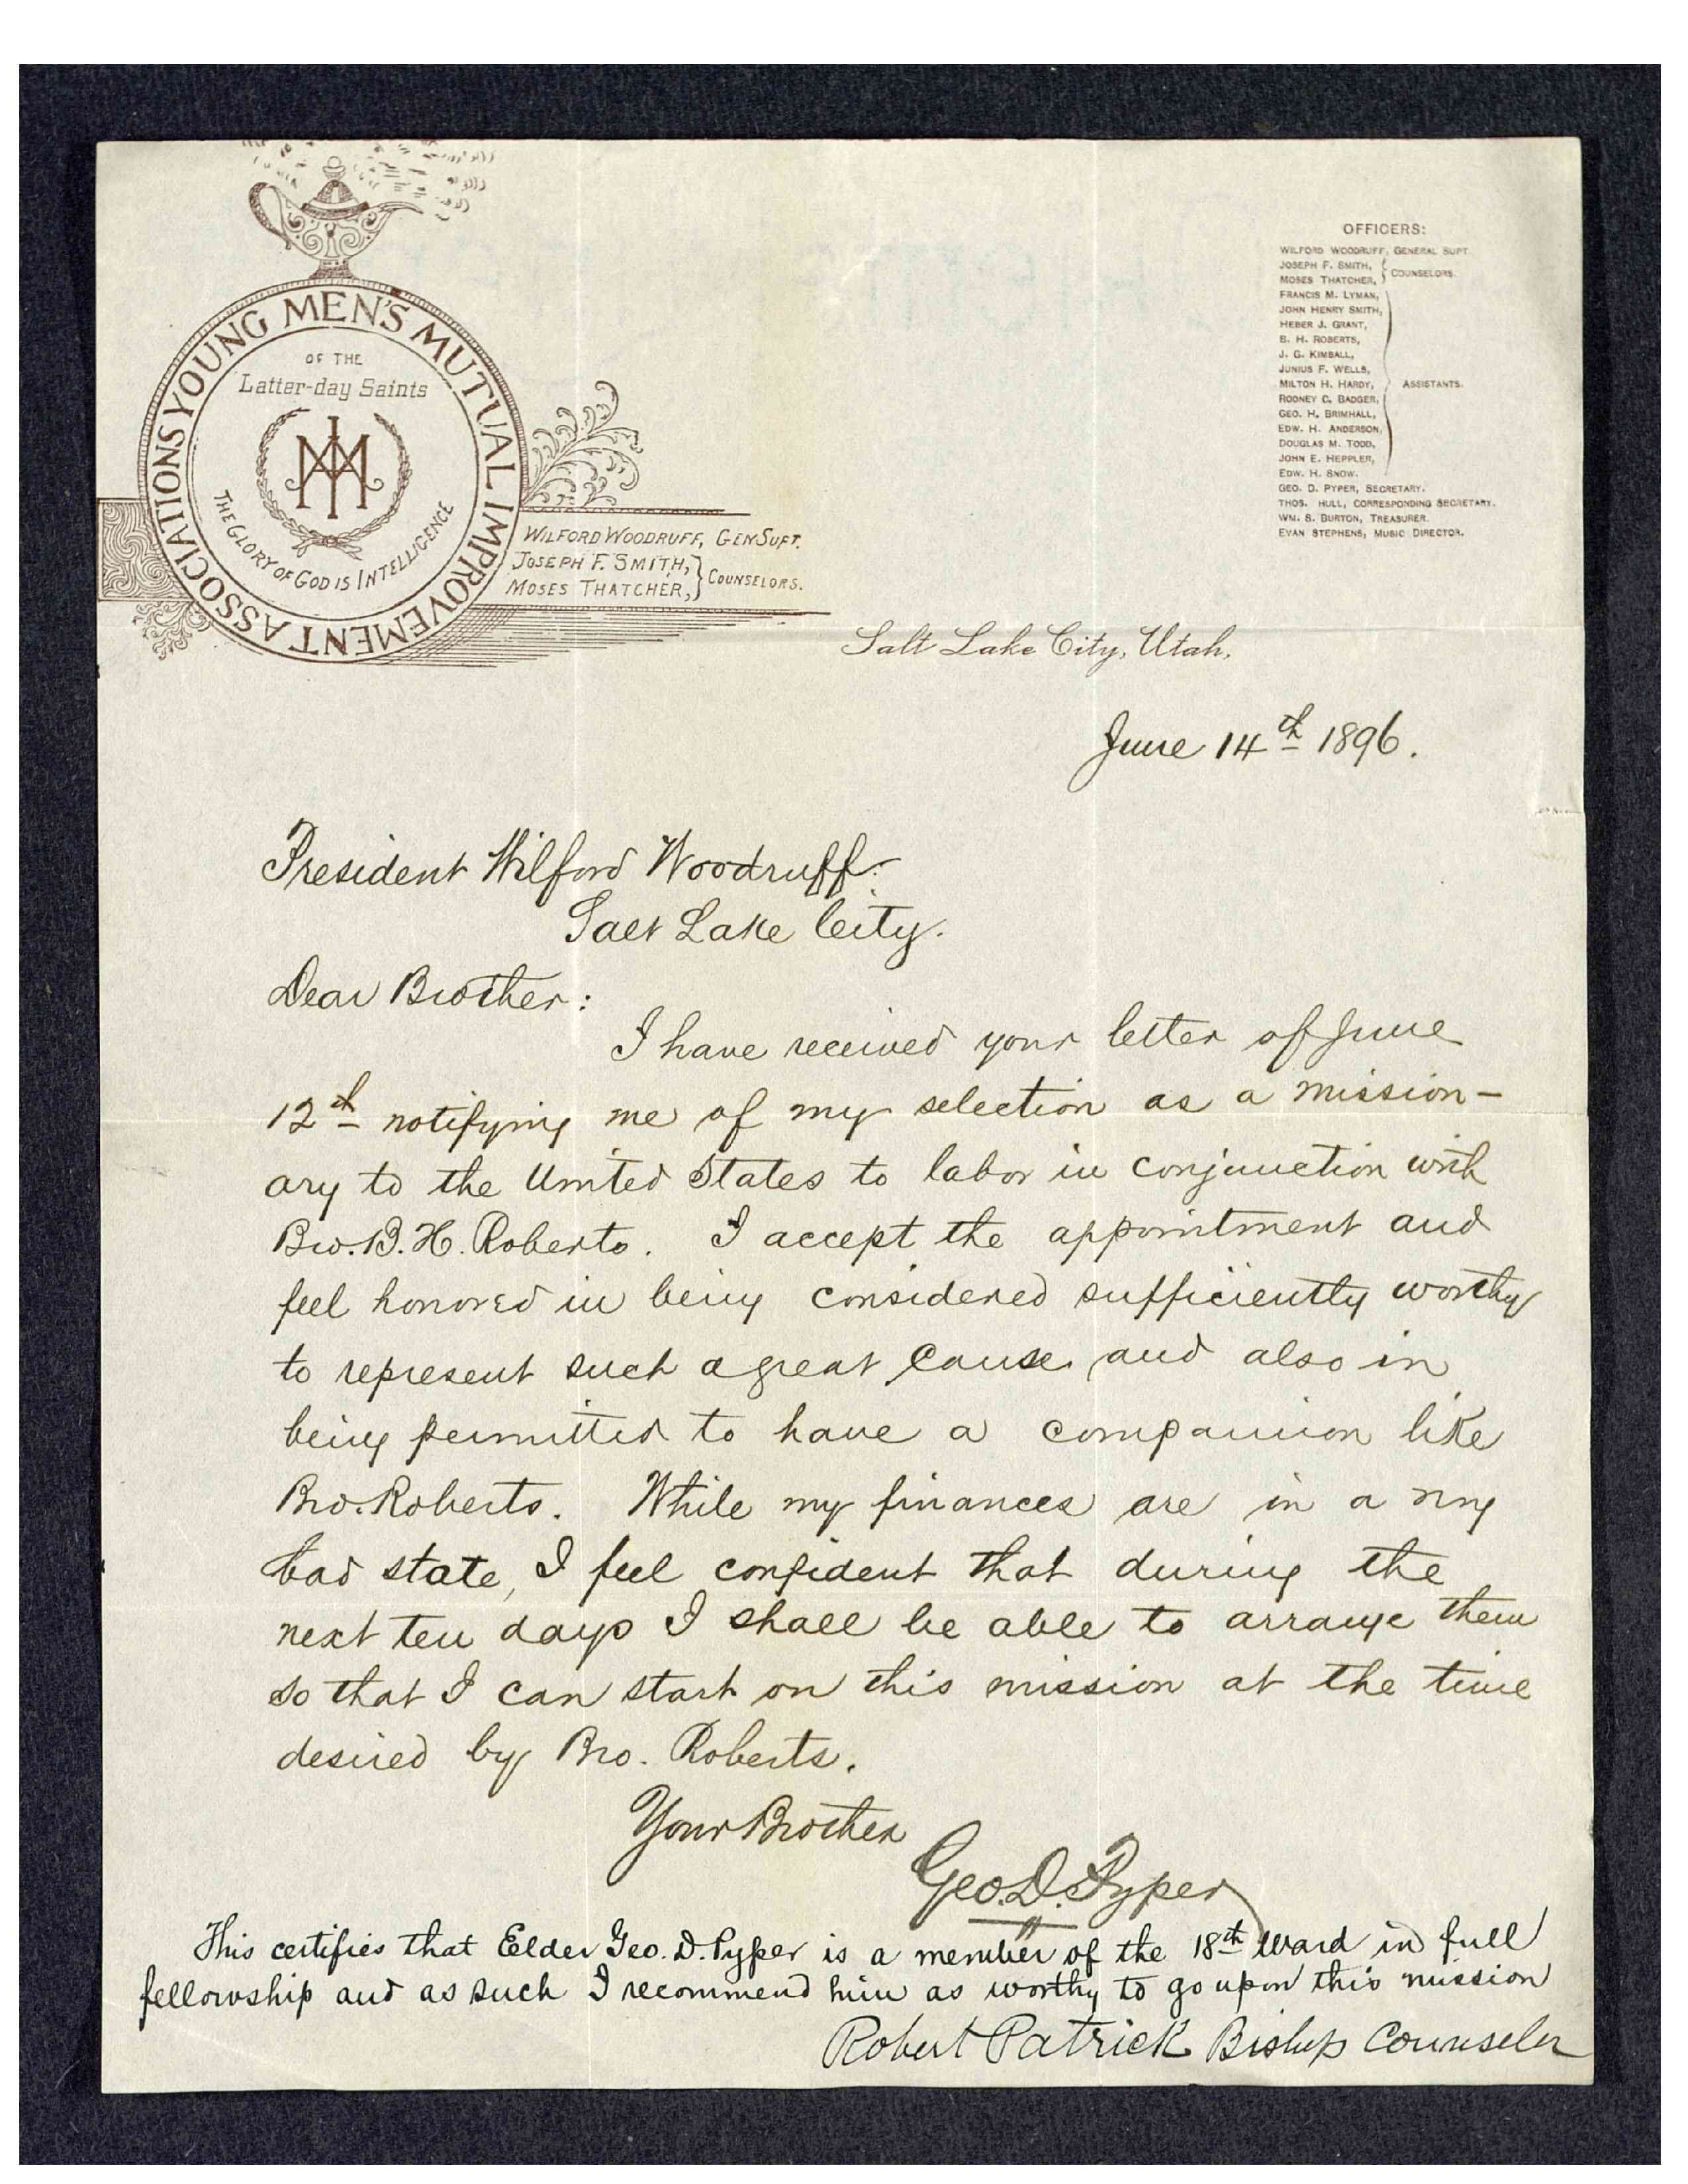 YOUNG MEN'S MUTUAL IMPROVEMENT ASSOCIATIONS
OF THE
Latter-day Saints
MIA
THE GLORY OF GOD IS INTELLIGENCE
WILFORD WOODRUFF, GEN SUPT.
JOSEPH F. SMITH,
MOSES THATCHER,
COUNSELORS.
OFFICERS:
WILFORD WOODRUFF, GENERAL SUPT.
JOSEPH F. SMITH,
MOSES THATCHER,
COUNSELORS.
FRANCIS M. LYMAN,
JOHN HENRY SMITH,
HEBER J. GRANT,
B. H. ROBERTS,
J. G. KIMBALL,
JUNIUS F. WELLS,
MILTON H. HARDY,
RODNEY C. BADGER,
GEO. H. BRIMHALL,
EDW. H. ANDERSON,
DOUGLAS M. TODD,
JOHN E. HEPPLER,
EDW. H. SNOW.
ASSISTANTS.
GEO. D. PYPER, SECRETARY.
THOS. HULL, CORRESPONDING SECRETARY.
WM. S. BURTON, TREASURER.
EVAN STEPHENS, MUSIC DIRECTOR.
Salt Lake City, Utah,
June 14th 1896.
President Wilford Woodruff.
Salt Lake City.
Dear Brother:
I have received your letter of June
12th notifying me of my selection as a mission-
ary to the United States to labor in conjunction with
Bro. B. H. Roberts. I accept the appointment and
feel honored in being considered sufficiently worthy
to represent such a great cause and also in
being permitted to have a companion like
Bro. Roberts. While my finances are in a very
bad state, I feel confident that during the
next ten days I shall be able to arrange them
so that I can start on this mission at the time
desired by Bro. Roberts.
Your Brother
Geo. D. Pyper
This certifies that Eelder Geo. D. Pyper is a member of the 18th Ward in full
fellowship and as such I recommend him as worthy to go upon this mission
Robert Patrick Bishop Counseler